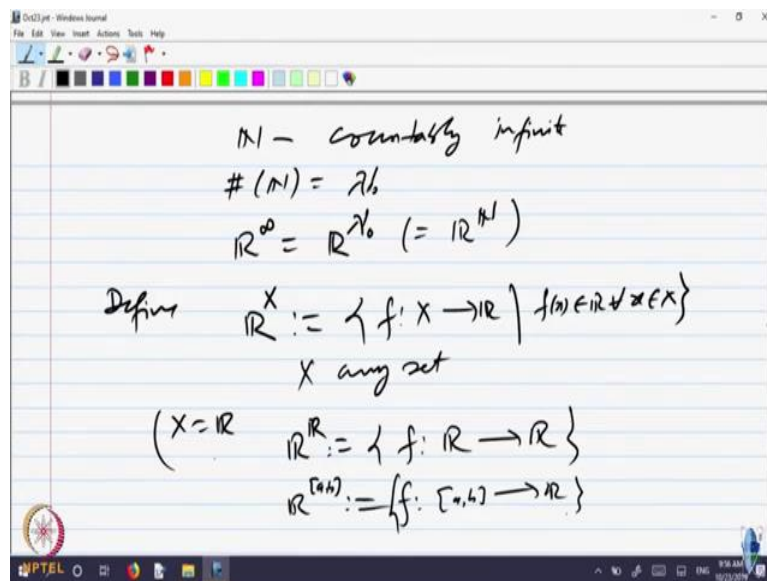 Oct23.jnt - Windows Journal
File Edit View Insert Actions Tools Help
B I
ℕ - countably infinit
#(ℕ) = ℵ₀
ℝ^∞ = ℝ^ℵ₀ (= ℝ^ℕ)
Define ℝ^X := { f: X → ℝ | f(x) ∈ ℝ ∀ x ∈ X }
X any set
( X = ℝ ℝ^ℝ := { f: ℝ → ℝ }
ℝ^[a,b] := { f: [a,b] → ℝ }
NPTEL ENG 9:56 AM
10/23/2019